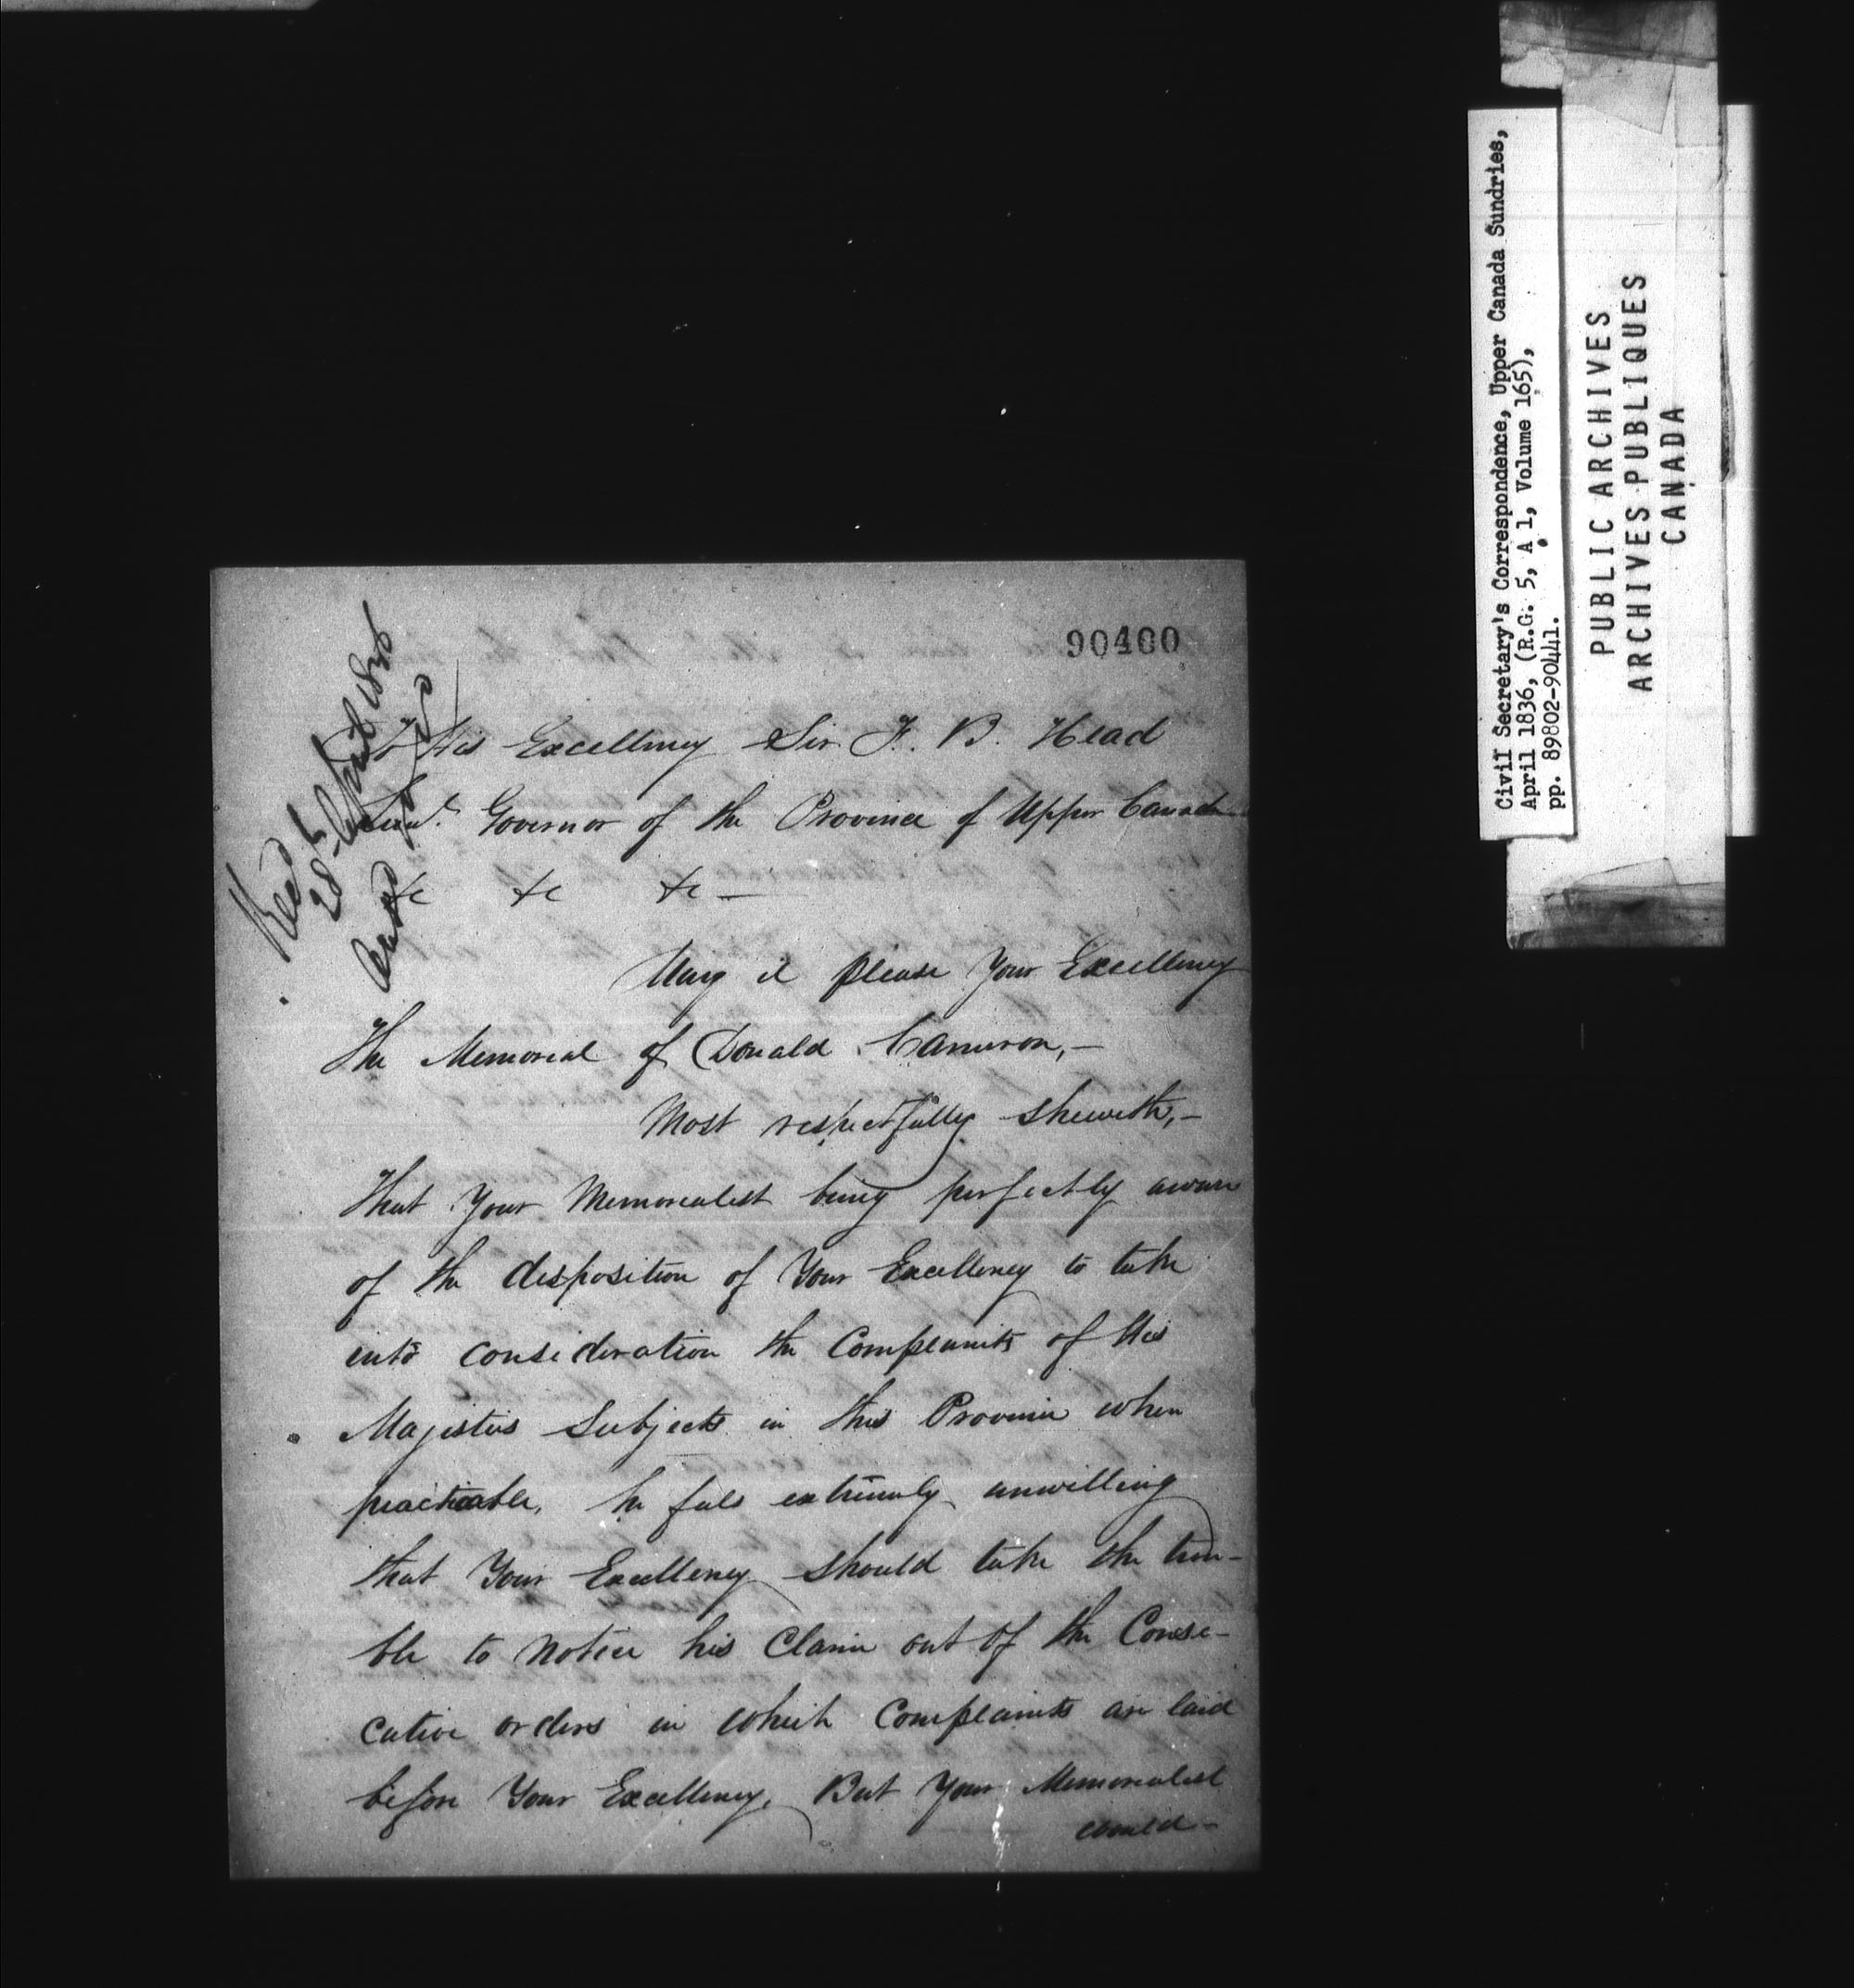 90400
Recd
28th April 1836
To His Excellency Sir F. B. Head
Lieut. Governor of the Province of Upper Canada
&c &c &c —
May it please Your Excellency
The Memorial of Donald Cameron, —
Most respectfully sheweth, —
That Your Memorialist being perfectly aware
of the disposition of Your Excellency to take
into consideration the Complaints of His
Majesties Subjects in this Province when
practicable, he feels extremely unwilling
that Your Excellency should take the trou-
ble to notice his Claim out of the Conse-
cutive orders in which Complaints are laid
before Your Excellency. But Your Memorialist
could —
Civil Secretary's Correspondence, Upper Canada Sundries,
April 1836, (R.G. 5, A 1, Volume 165),
pp. 89802-90441.
PUBLIC ARCHIVES
ARCHIVES PUBLIQUES
CANADA